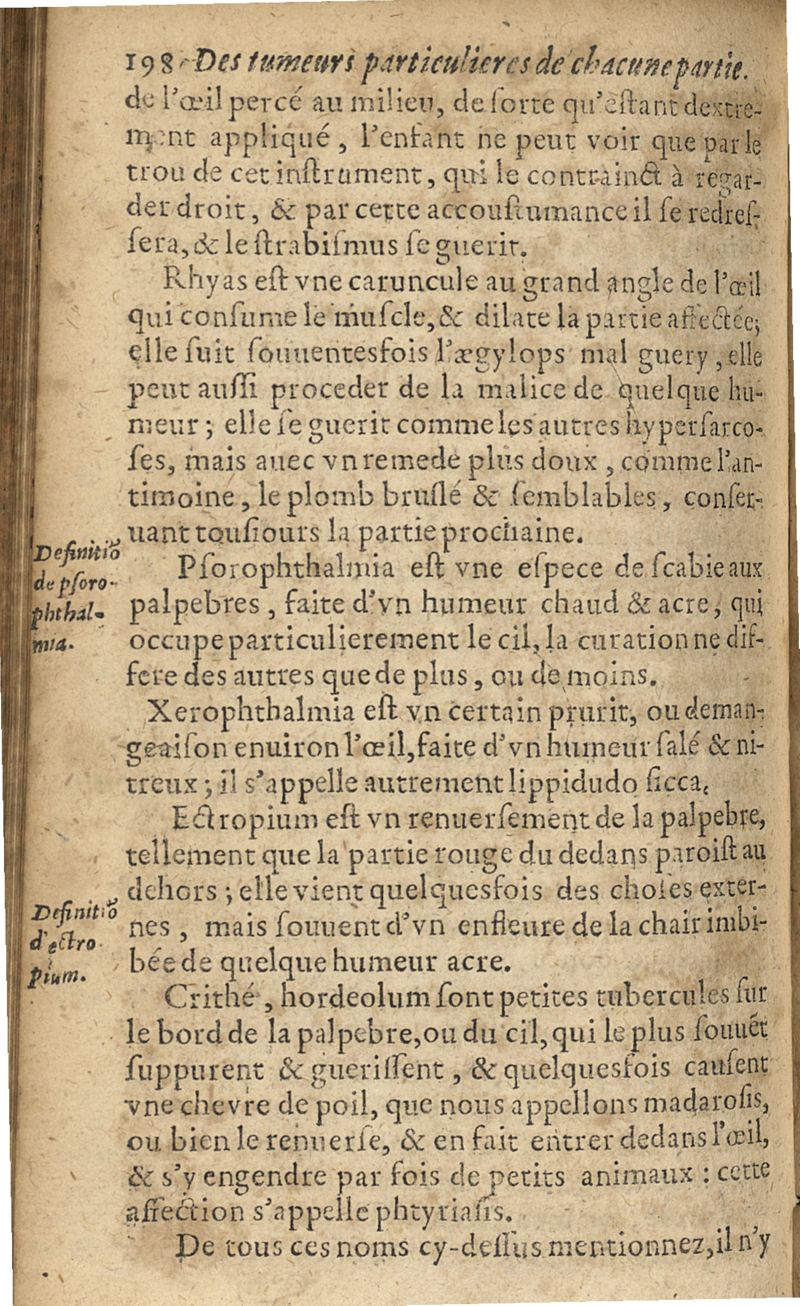 198 Des tumeurs particulieres de chacune partie.
de l'œil percé au milieu, de sorte qu'eſtant dextre-
ment appliqué, l'enfant ne peut voir que par le
trou de cet inſtrument, qui le contrainct à regar-
der droit, & par cette accouſtumance il ſe redreſ-
ſera, & le ſtrabiſmus ſe guerit.
Rhyas eſt vne caruncule au grand angle de l'œil
qui conſume le muſcle, & dilate la partie affectée;
elle ſuit ſouuentesfois l'ægylops mal guery, elle
peut auſſi proceder de la malice de quelque hu-
meur; elle ſe guerit comme les autres hyperſarco-
ſes, mais auec vn remede plus doux, comme l'an-
timoine, le plomb bruſlé & ſemblables, conſer-
uant touſiours la partie prochaine.
Definitiō
de pſoro-
phthal-
mia.
Pſorophthalmia eſt vne eſpece de ſcabie aux
palpebres, faite d'vn humeur chaud & acre, qui
occupe particulierement le cil, la curation ne dif-
fere des autres que de plus, ou de moins.
Xerophthalmia eſt vn certain prurit, ou deman-
geaiſon enuiron l'œil, faite d'vn humeur ſalé & ni-
treux; il s'appelle autrement lippidudo ſicca.
Ectropium eſt vn renuerſement de la palpebre,
tellement que la partie rouge du dedans paroiſt au
dehors; elle vient quelquesfois des choſes exter-
nes, mais ſouuent d'vn enfleure de la chair imbi-
bée de quelque humeur acre.
Definitiō
d'ectro
pium.
Crithé, hordeolum ſont petites tubercules ſur
le bord de la palpebre, ou du cil, qui le plus ſouuēt
ſuppurent & gueriſſent, & quelquesfois cauſent
vne chevre de poil, que nous appellons madaroſis,
ou bien le renuerſe, & en fait entrer dedans l'œil,
& s'y engendre par fois de petits animaux : cette
affection s'appelle phtyriaſis.
De tous ces noms cy-deſſus mentionnez, il n'y